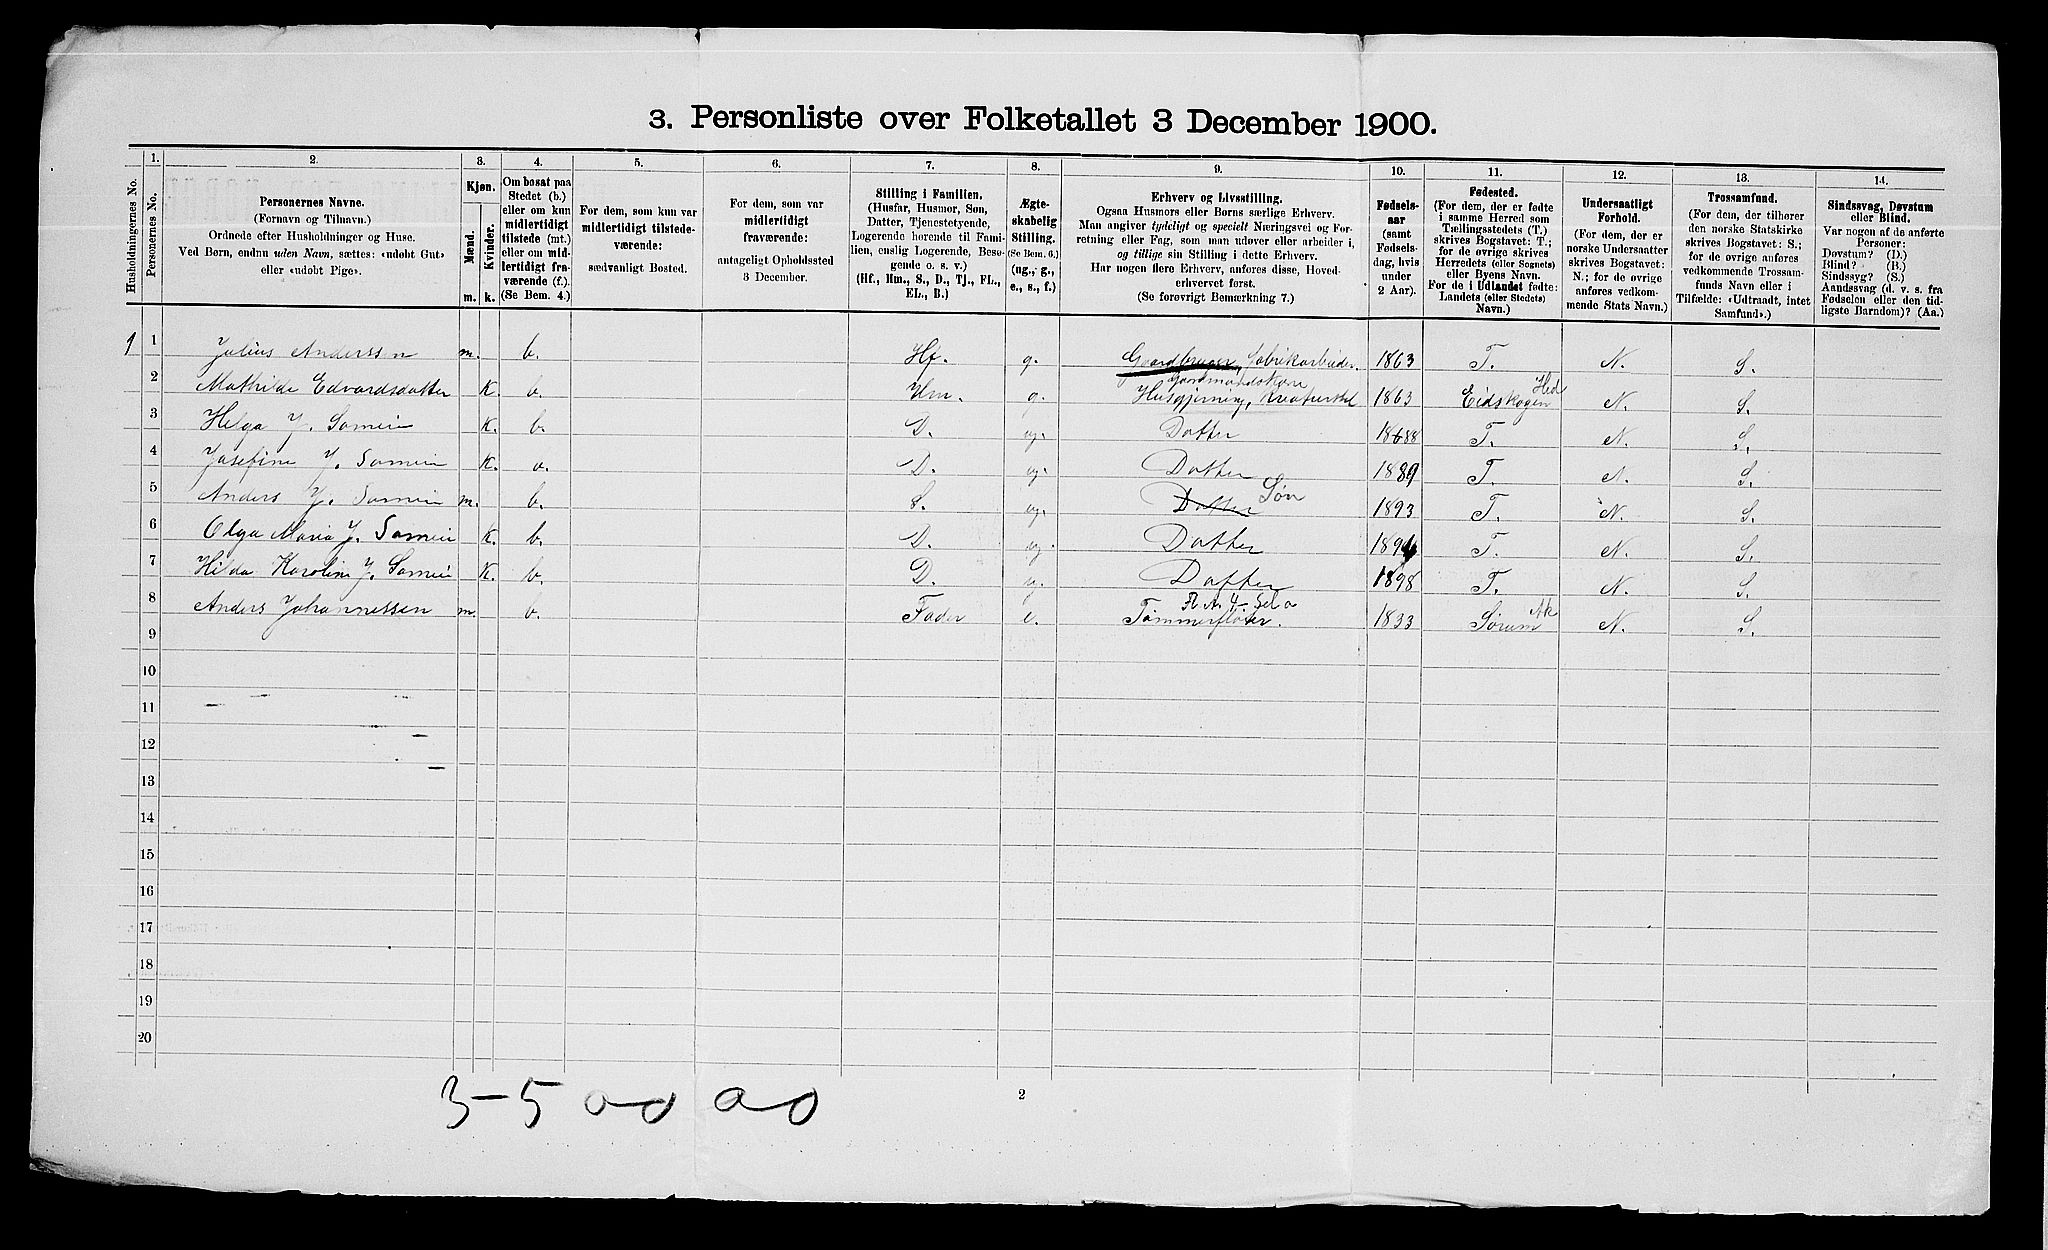 3. Personliste over Folketallet 3 December 1900.
Husholdningernes No.
1.
Personernes No.
2.
Personernes Navne.
(Fornavn og Tilnavn.)
Ordnede efter Husholdninger og Huse.
Ved Børn, endnu uden Navn, sættes: «udøbt Gut»
eller «udøbt Pige».
3.
Kjøn.
Mænd.
Kvinder.
m. k.
4.
Om bosat paa
Stedet (b.)
eller om kun
midlertidigt
tilstede (mt.)
eller om mid-
lertidigt fra-
værende (f.).
(Se Bem. 4.)
5.
For dem, som kun var
midlertidigt tilstede-
værende:
sædvanligt Bosted.
6.
For dem, som var
midlertidigt
fraværende:
antageligt Opholdssted
3 December.
7.
Stilling i Familien.
(Husfar, Husmor, Søn,
Datter, Tjenestetyende,
Logerende hørende til Fami-
lien, enslig Logerende, Besø-
gende o. s. v.)
(Hf., Hm., S., D., Tj., FL.,
EL., B.)
8.
Ægte-
skabelig
Stilling.
(Se Bem. 6.)
(ug., g.,
e., s., f.)
9.
Erhverv og Livsstilling.
Ogsaa Husmors eller Børns særlige Erhverv.
Man angiver tydeligt og specielt Næringsvei og For-
retning eller Fag, som man udøver eller arbeider i,
og tillige sin Stilling i dette Erhverv.
Har nogen flere Erhverv, anføres disse, Hoved-
erhvervet først.
(Se forøvrigt Bemærkning 7.)
10.
Fødsels-
aar
(samt
Fødsels-
dag, hvis
under
2 Aar).
11.
Fødested.
(For dem, der er fødte
i samme Herred som
Tællingsstedets (T.)
skrives Bogstavet: T.;
for de øvrige skrives
Herredets (eller Sognets)
eller Byens Navn.
For de i Udlandet fødte:
Landets (eller Stedets)
Navn.)
12.
Undersaatligt
Forhold.
(For dem, der er
norske Undersaatter
skrives Bogstavet:
N.; for de øvrige
anføres vedkom-
mende Stats Navn.)
13.
Trossamfund.
(For dem, der tilhører
den norske Statskirke
skrives Bogstavet: S.;
for de øvrige anføres
vedkommende Trossam-
funds Navn eller i
Tilfælde: «Udtraadt, intet
Samfund».)
14.
Sindssvag, Døvstum
eller Blind.
Var nogen af de anførte
Personer:
Døvstum? (D.)
Blind? (B.)
Sindssyg? (S.)
Aandssvag (d. v. s. fra
Fødselen eller den tid-
ligste Barndom)? (Aa.)
1 1 Julius Anderssen m. b. Hf. g. Gaardbruger, fabrikarbeider. 1863 T. N. S.
Gaardmandskone Hed
2 Mathilde Edvardsdatter K. b. Hm. g. Husgjerning, 1863 Eidskogen N. S.
3 Helga J. K. b. D. ug. Datter 1888 T. N. S.
4 Josefine J. K. b. D. ug. Datter 1889 T. N. S.
5 Anders J. m. b. S. ug. Datter Søn 1893 T. N. S.
6 Olga Maria J. K. b. D. ug. Datter T. N. S.
7 Hilda Karoline J. K. b. D. ug. Datter 1898 T. N. S.
Ak
8 Anders Johannessen m. b. Fader e. Tømmerfløter. 1833 Sørum N. S.
9
10
11
12
13
14
15
16
17
18
19
20
3-5 00 00
2